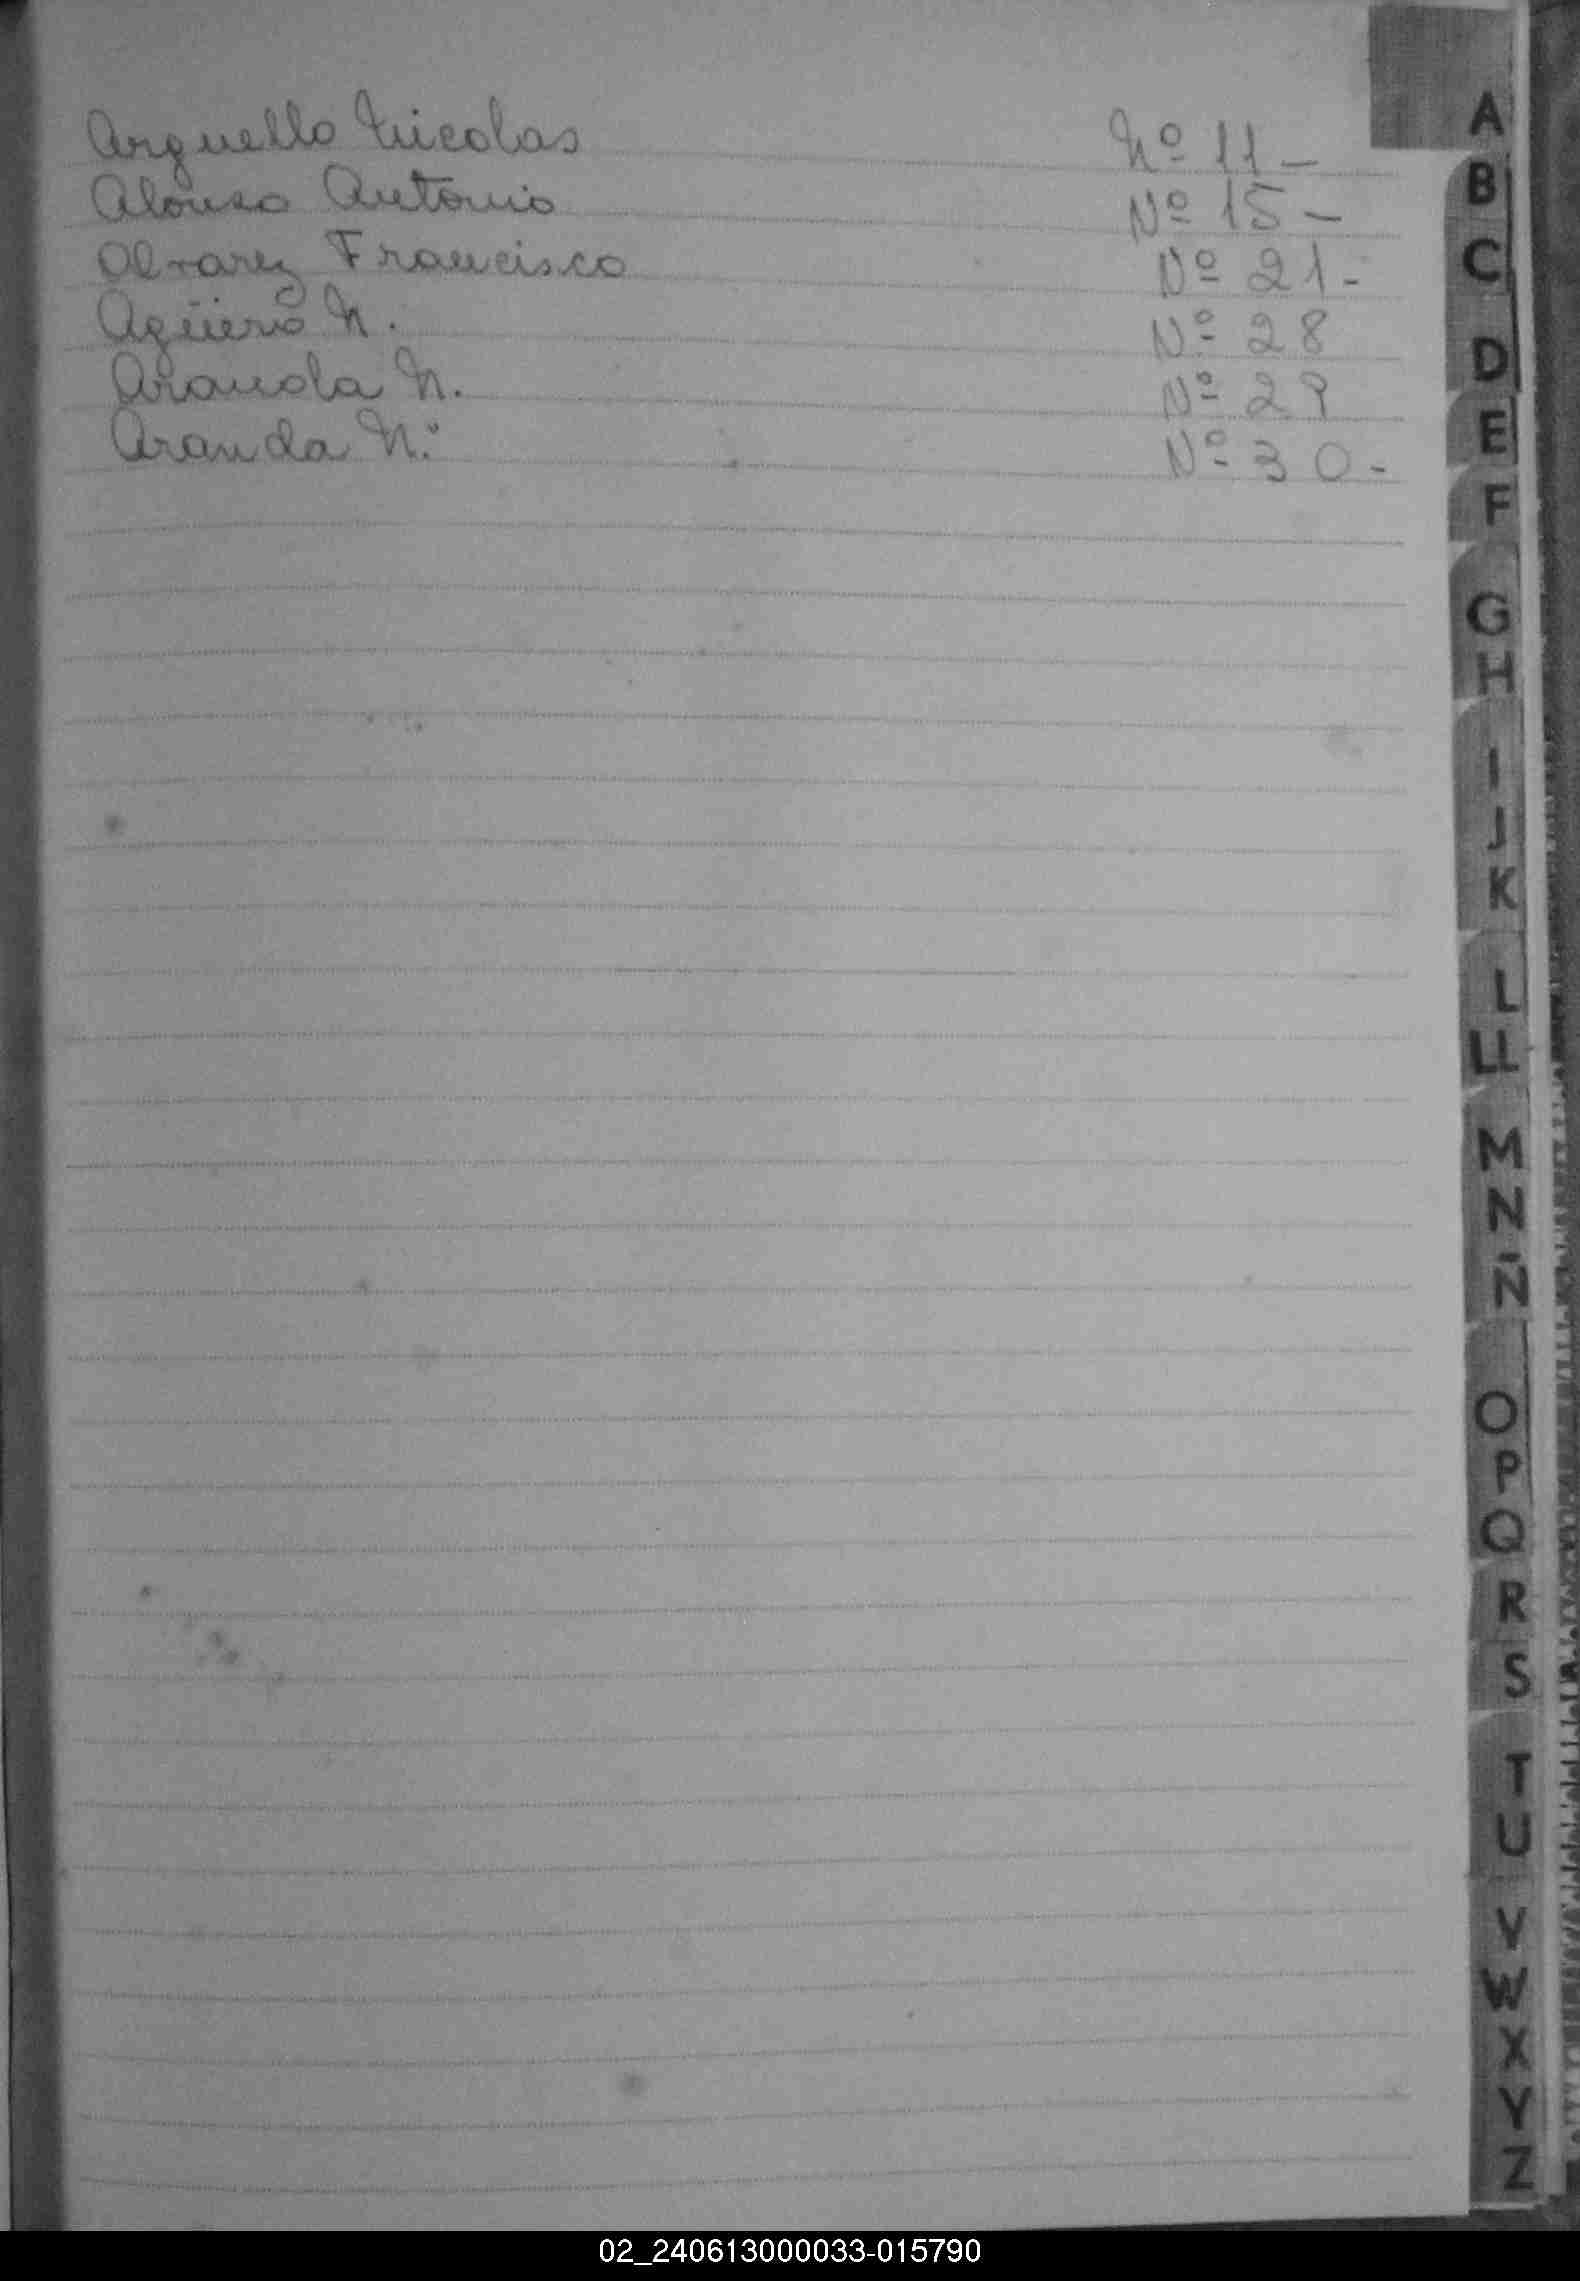 Arguello Nicolas Nº 11 -
Alonso Antonio Nº 15 -
Alvarez Francisco Nº 21 -
Agüero N. Nº 28
Aranda N. Nº 29
Aranda N. Nº 30 -
A
B
C
D
E
F
G
H
I
J
K
L
LL
M
N
Ñ
O
P
Q
R
S
T
U
V
W
X
Y
Z
02_240613000033-015790